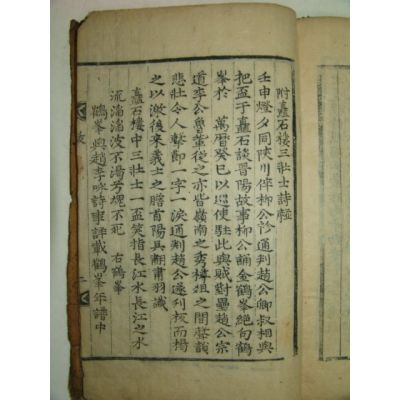 附矗石樓三壯士詩
壬申燈夕同陜川倅柳公診通判趙公卿叔相與
把盃于矗石談晋陽故事柳公誦金鶴峯絶句鶴
峯於 萬曆癸巳以巡使駐此與賊對壘趙公宗
道李公魯輩從之亦皆嶺南之秀樽俎之間韻
悲壯令人擊節一字一淚通判趙公遂刊板而揭
之以激後來義士之膽首陽吳翿肅羽識
矗石樓中三壯士一盃笑指長江水長江之水
流滔滔波不渴兮魂不死 右鶴峯
鶴峯與趙李咏詩事詳載鶴峯年譜中